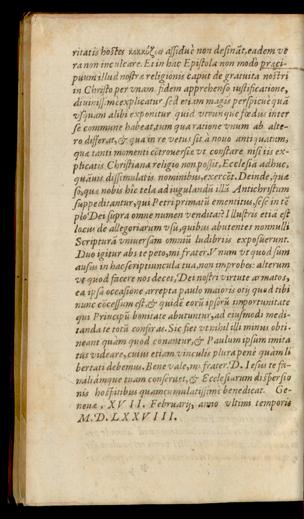 ritatis hostes κακκύζω assiduè non desinãt, eadem ve
ra non inculcare. Et in hac Epistola non modò præci-
puum illud nostræ religionis caput de gratuita nostri
in Christo per vnam fidem apprehenso iustificatione,
diuiniss. mè explicatur sed etiam magis perspicuè quã
vsquam alibi exponitur quid vtrunque fœdus inter
se commune habeat, tum qua ratione vnum ab alte-
ro differat, & qua in re vetus sit à nouo antiquatum,
quæ tanti momenti cõtrouersia vt constare nisi iis ex-
plicatis Christiana religio non possit, Ecclesiã adhuc,
quãuis dissimulatis nominibus, exercẽt. Deinde, quæ
sò, quæ nobis hîc tela ad iugulandũ illũ Antichristum
suppeditantur, qui Petri primatũ ementitus, sese in tẽ
plo Dei supra omne numen venditat? Illustris etiã est
locus de allegoriarum vsu, quibus abutentes nonnulli
Scripturã vniuersam omniũ ludibriis exposuerunt.
Duo igitur abs te peto, mi frater. Vnum vt quod sum
ausus in hac scriptiuncula tua, non improbes: alterum
vt quod facere nos decet, Dei nostri virtute armatos,
ea ipsa occasione, arrepta paulo maioris otij quod tibi
nunc cõcessum est, & quidẽ eorũ ipsorũ importunitate
qui Principũ bonitate abutuntur, ad eiusmodi medi-
tanda te totũ conferas. Sic fiet vt nihil illi minus obti-
neant quàm quod conantur, & Paulum ipsum imita
tus videare, cuius etiam vinculis plura penè quàm li
bertati debemus. Bene vale, mi frater. D. Iesus te fa-
miliámque tuam conseruet, & Ecclesiarum dispersio
nis hospitibus quàm cumulatissimè benedicat. Ge-
neuæ, XVII. Februarij, anno vltimi temporis
M. D. LXXVIII.